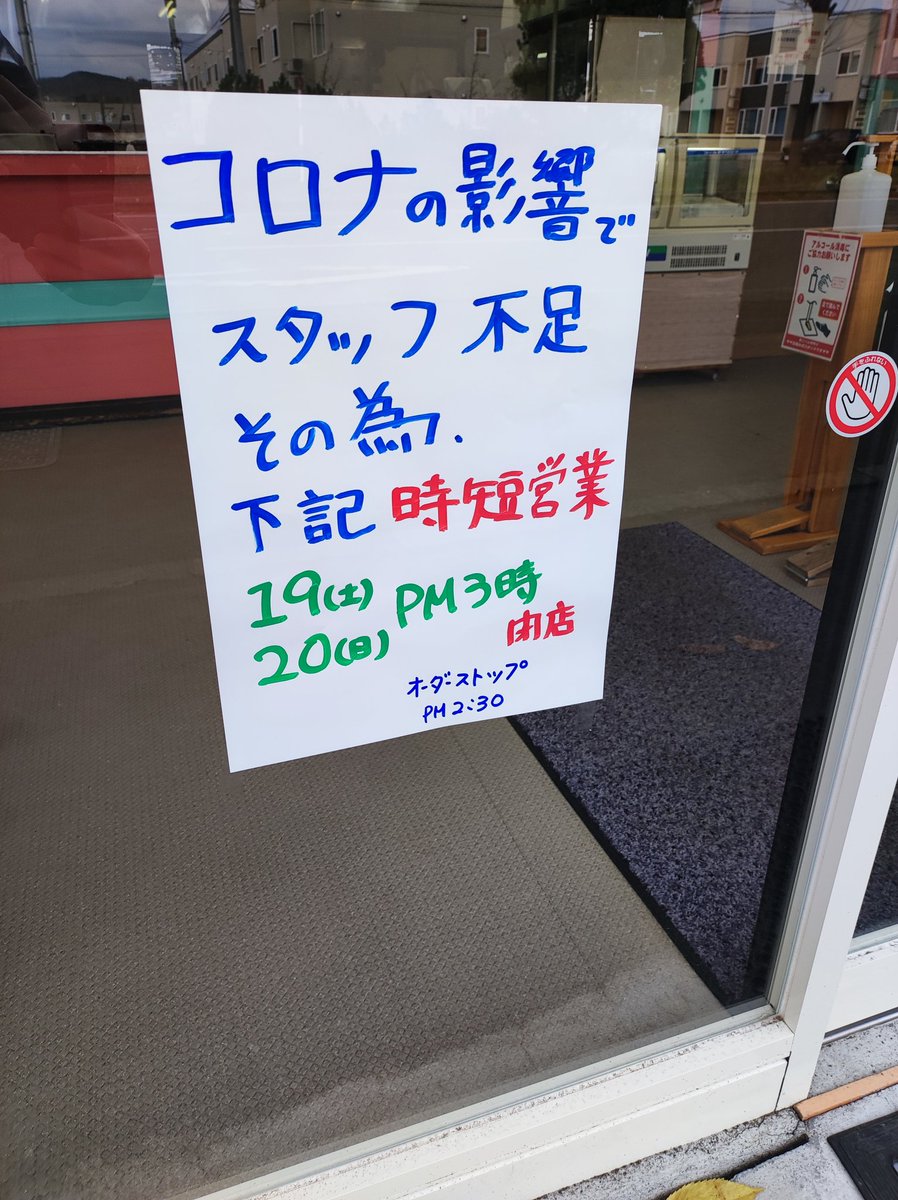 コロナの影響で
スタッフ不足
その為、
下記 時短営業
19(土) PM3時
20(日) 閉店
オーダーストップ
PM2:30
アルコール消毒に
ご協力お願いします